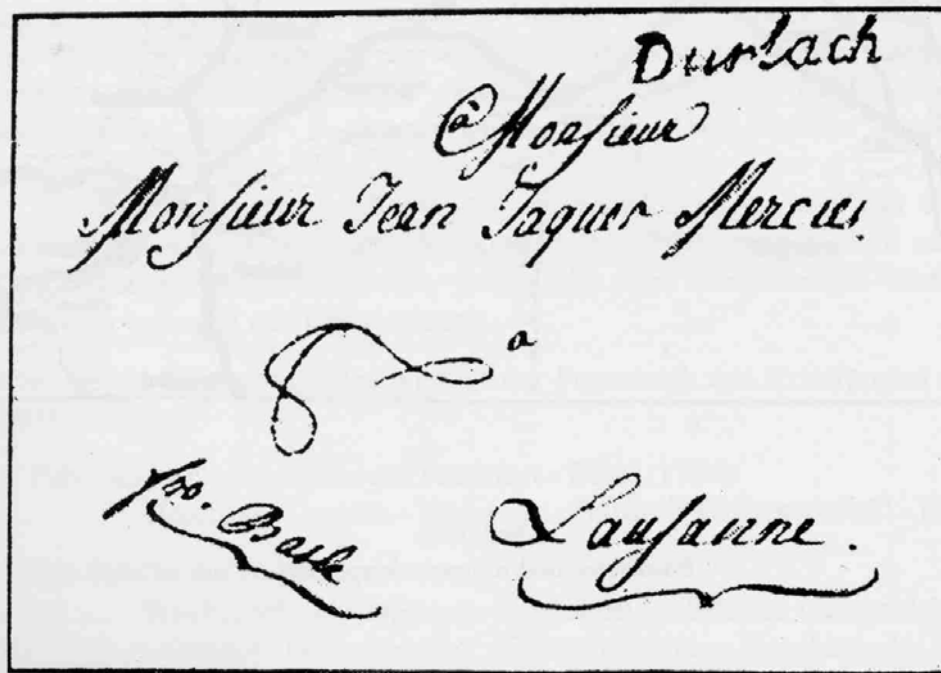 Durlach
à Monsieur
Monsieur Jean Jaques Mercier
a
fro. Basle
Lausanne.